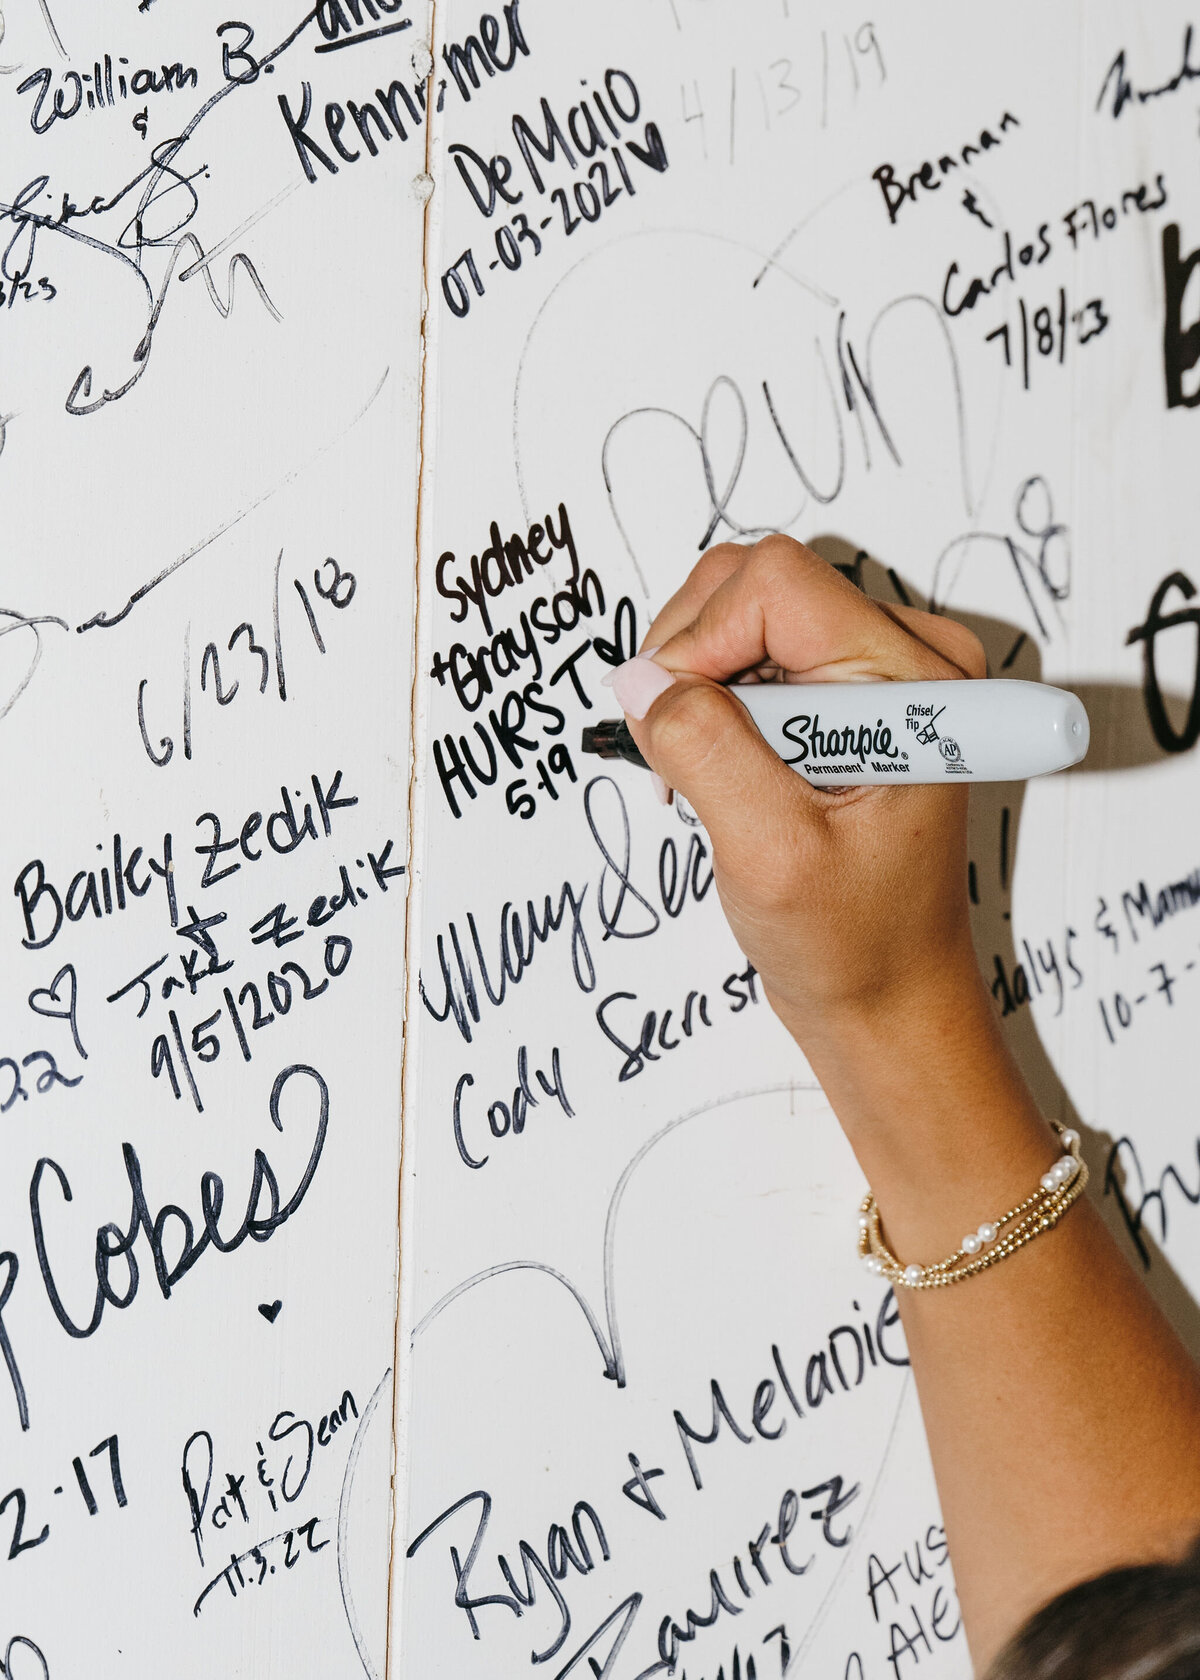 William B.
&
and
Kennemer
De Maio
07-03-2021
4/13/19
Brennan
&
Carlos Flores
7/8/23
6/23/18
18
Sydney
+Grayson
HURST
5-19
Sharpie®
Permanent Marker
Chisel
Tip
AP
Bailey Zedik
+
Jake Zedik
9/5/2020
22
Mary Sec
Cody Secrist
& Mam
10-7-
Cobes
2-17
Pat & Sean
11.3.22
Ryan + Melanie
Ramirez
Aus
Ale